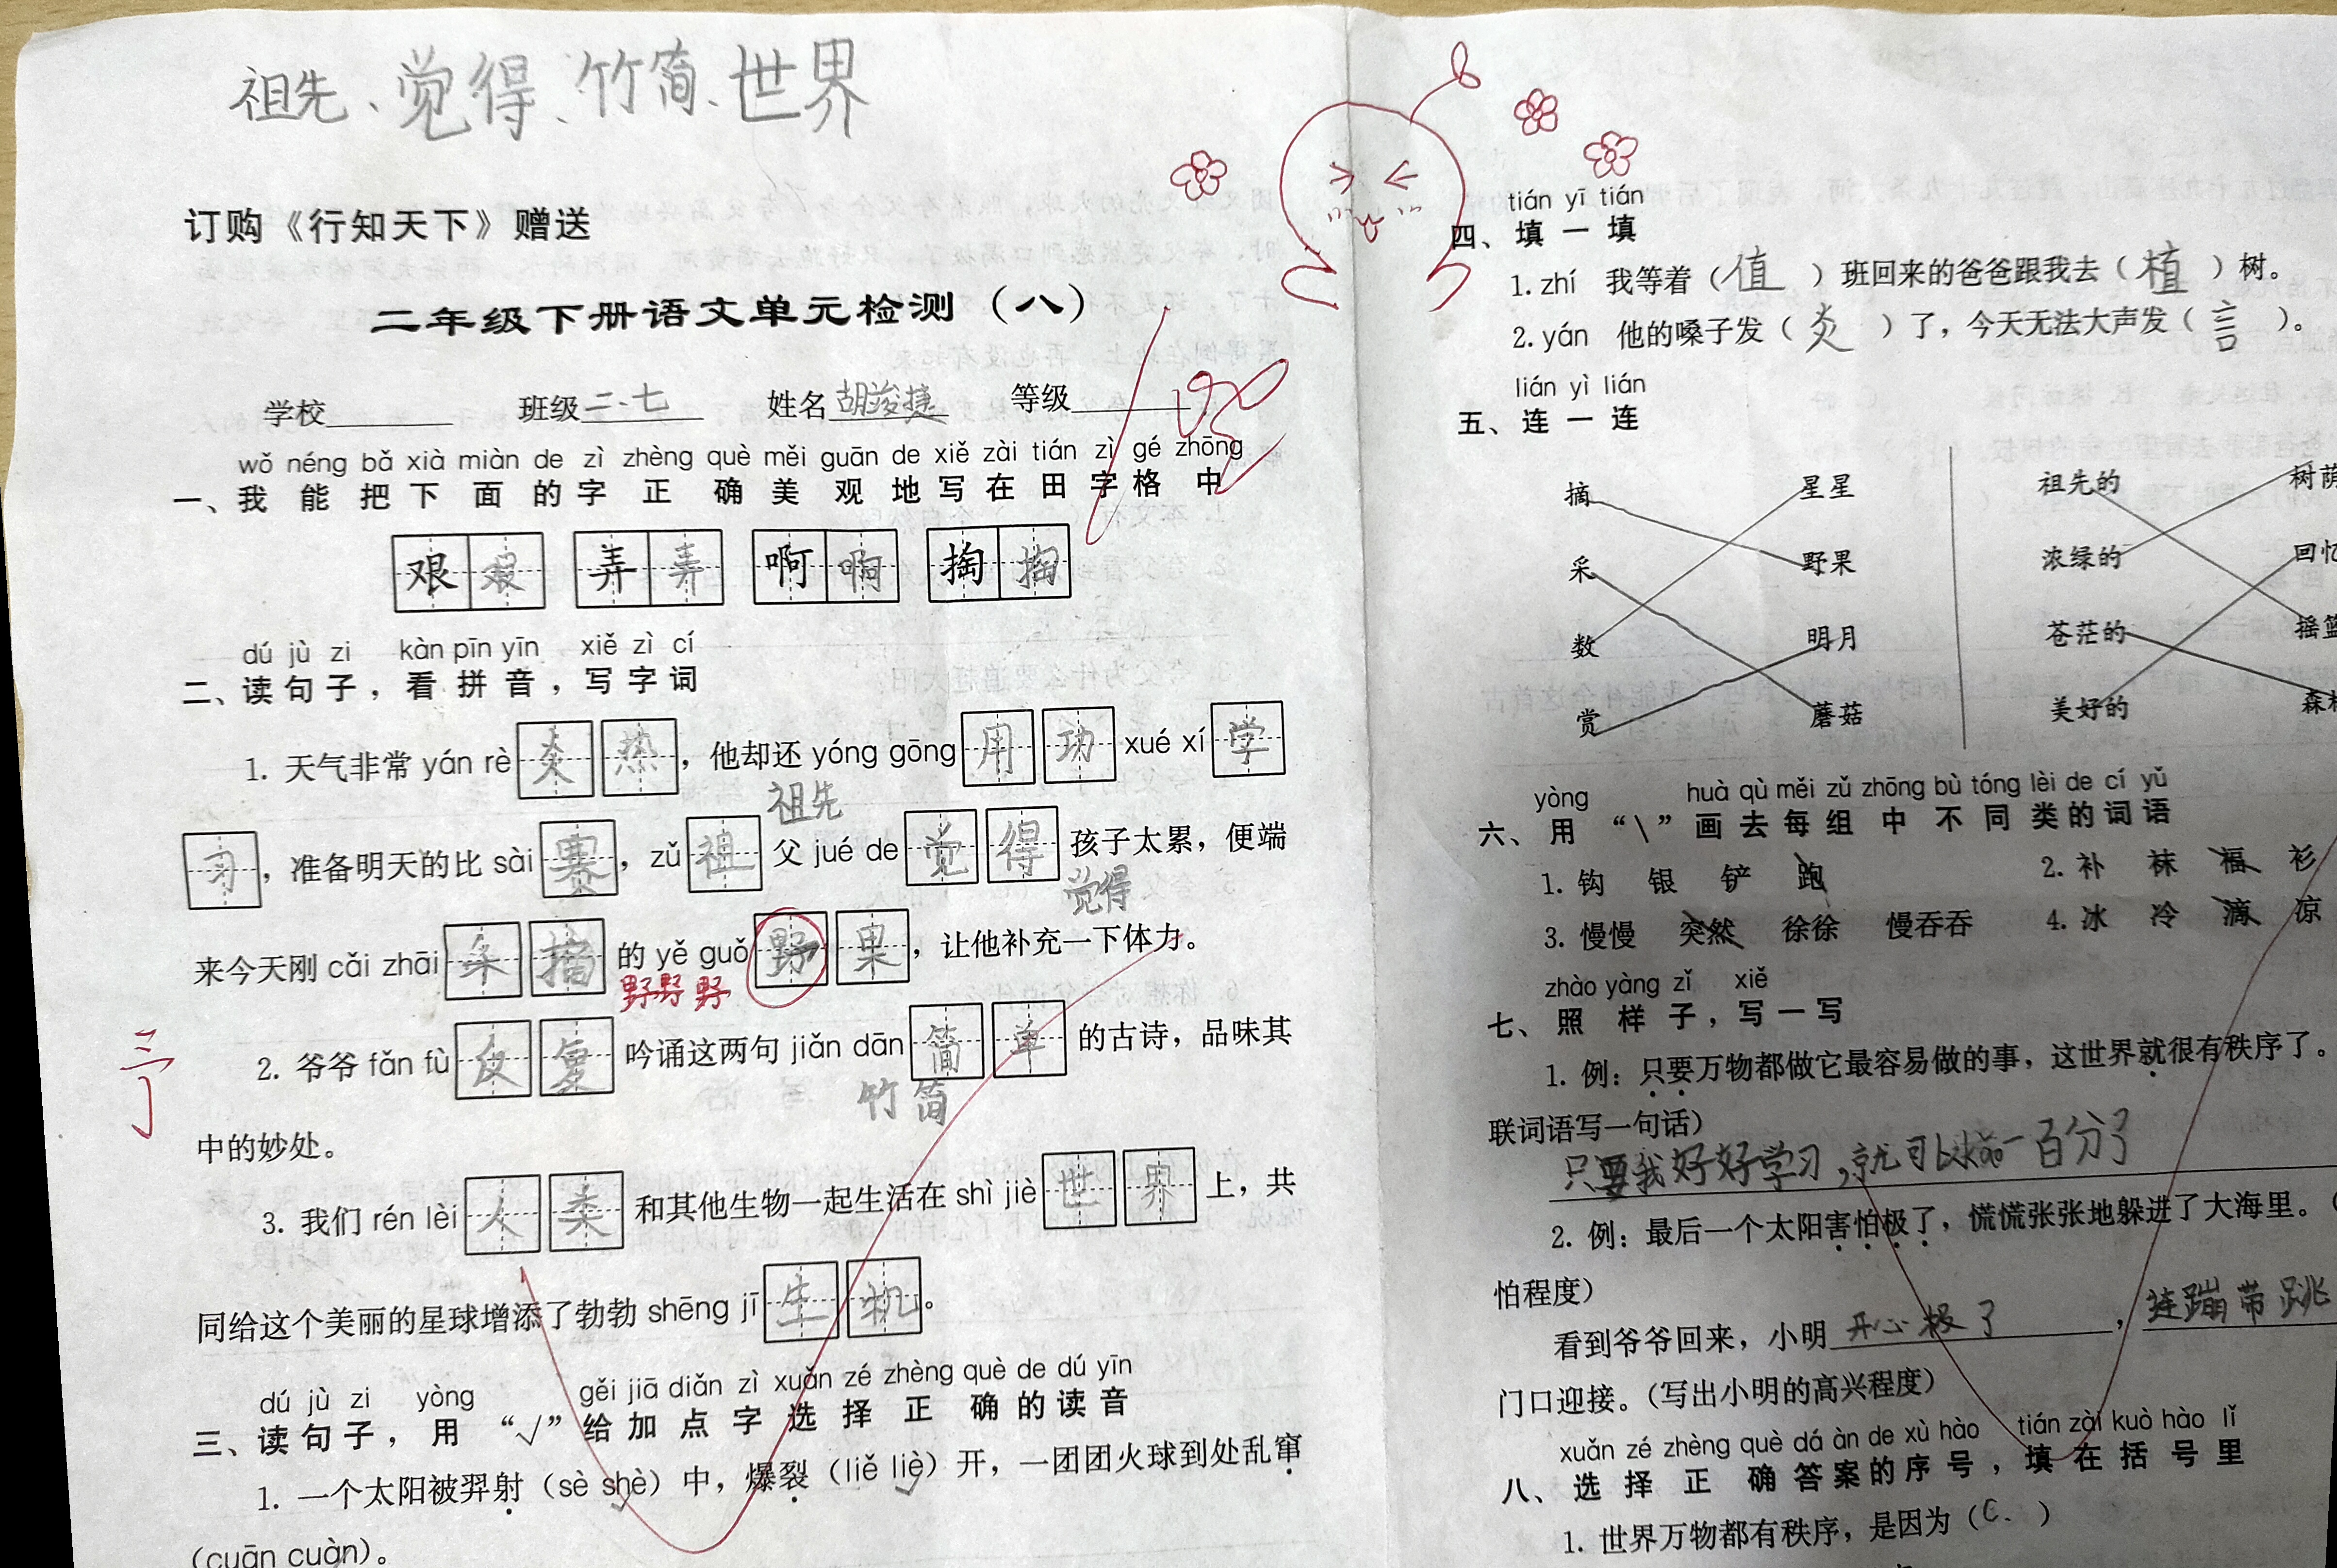 祖先、觉得、竹简、世界
订购《行知天下》赠送
二年级下册语文单元检测（八）
学校 班级二.七 姓名胡浚捷 等级
wǒ néng bǎ xià miàn de zì zhèng què měi guān de xiě zài tián zì gé zhōng
一、我能把下面的字正确美观地写在田字格中
艰艰 弄弄 啊啊 掏掏
dú jù zi kàn pīn yīn xiě zì cí
二、读句子，看拼音，写字词
1. 天气非常 yán rè 炎热，他却还 yóng gōng 用功 xué xí 学
祖先
习，准备明天的比 sài 赛，zǔ 祖父 jué de 觉得孩子太累，便端
觉得
来今天刚 cǎi zhāi 采摘的 yě guǒ 野果，让他补充一下体力。
野野野
2. 爷爷 fǎn fù 反复吟诵这两句 jiǎn dān 简单的古诗，品味其
竹简
中的妙处。
3. 我们 rén lèi 人类和其他生物一起生活在 shì jiè 世界上，共
同给这个美丽的星球增添了勃勃 shēng jī 生机。
dú jù zi yòng gěi jiā diǎn zì xuǎn zé zhèng què de dú yīn
三、读句子，用“√”给加点字选择正确的读音
1. 一个太阳被羿射（sè shè）中，爆裂（liě liè）开，一团团火球到处乱窜
（cuān cuàn）。
tián yī tián
四、填一填
1. zhí 我等着（值）班回来的爸爸跟我去（植）树。
2. yán 他的嗓子发（炎）了，今天无法大声发（言）。
lián yì lián
五、连一连
摘 星星 祖先的 树荫
采 野果 浓绿的 回忆
数 明月 苍茫的 摇篮
赏 蘑菇 美好的 森林
yòng huà qù měi zǔ zhōng bù tóng lèi de cí yǔ
六、用“\”画去每组中不同类的词语
1. 钩 银 铲 跑 2. 补 袜 福 衫
3. 慢慢 突然 徐徐 慢吞吞 4. 冰 冷 滴 凉
zhào yàng zǐ xiě
七、照样子，写一写
1. 例：只要万物都做它最容易做的事，这世界就很有秩序了。
联词语写一句话）
只要我好好学习，就可以一百分了
2. 例：最后一个太阳害怕极了，慌慌张张地躲进了大海里。（
怕程度）
看到爷爷回来，小明开心极了，连蹦带跳
门口迎接。（写出小明的高兴程度）
xuǎn zé zhèng què dá àn de xù hào tián zài kuò hào lǐ
八、选择正确答案的序号，填在括号里
1. 世界万物都有秩序，是因为（C.）